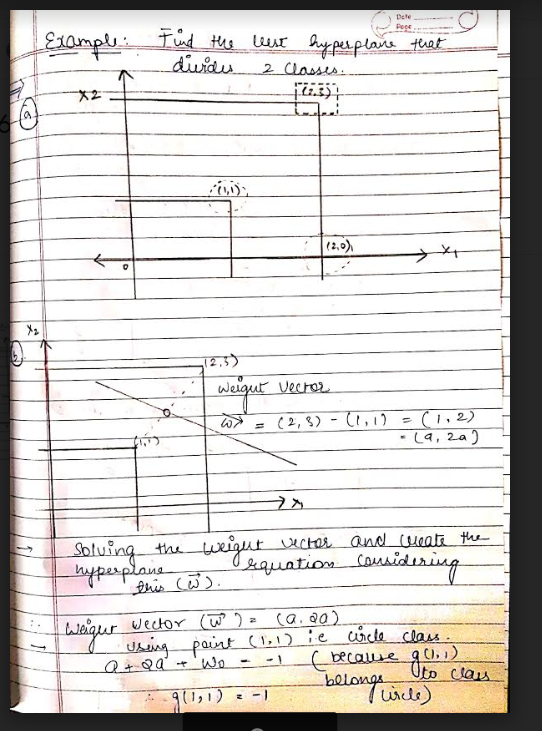 Date
Page
Example: Find the best hyperplane that
divides 2 classes.
a
X2
(2,3)
(1,1)
(2,0)
X1
0
b
X2
(2,3)
weight vector
w = (2,3) - (1,1) = (1,2)
= (a, 2a)
(1,1)
X1
→ Solving the weight vector and create the
hyperplane equation considering
this (w).
∴ Weight vector (w) = (a, 2a)
→ using point (1,1) ie circle class.
a + 2a + w0 = -1 (because g(1,1)
belongs to class
∴ g(1,1) = -1 circle)